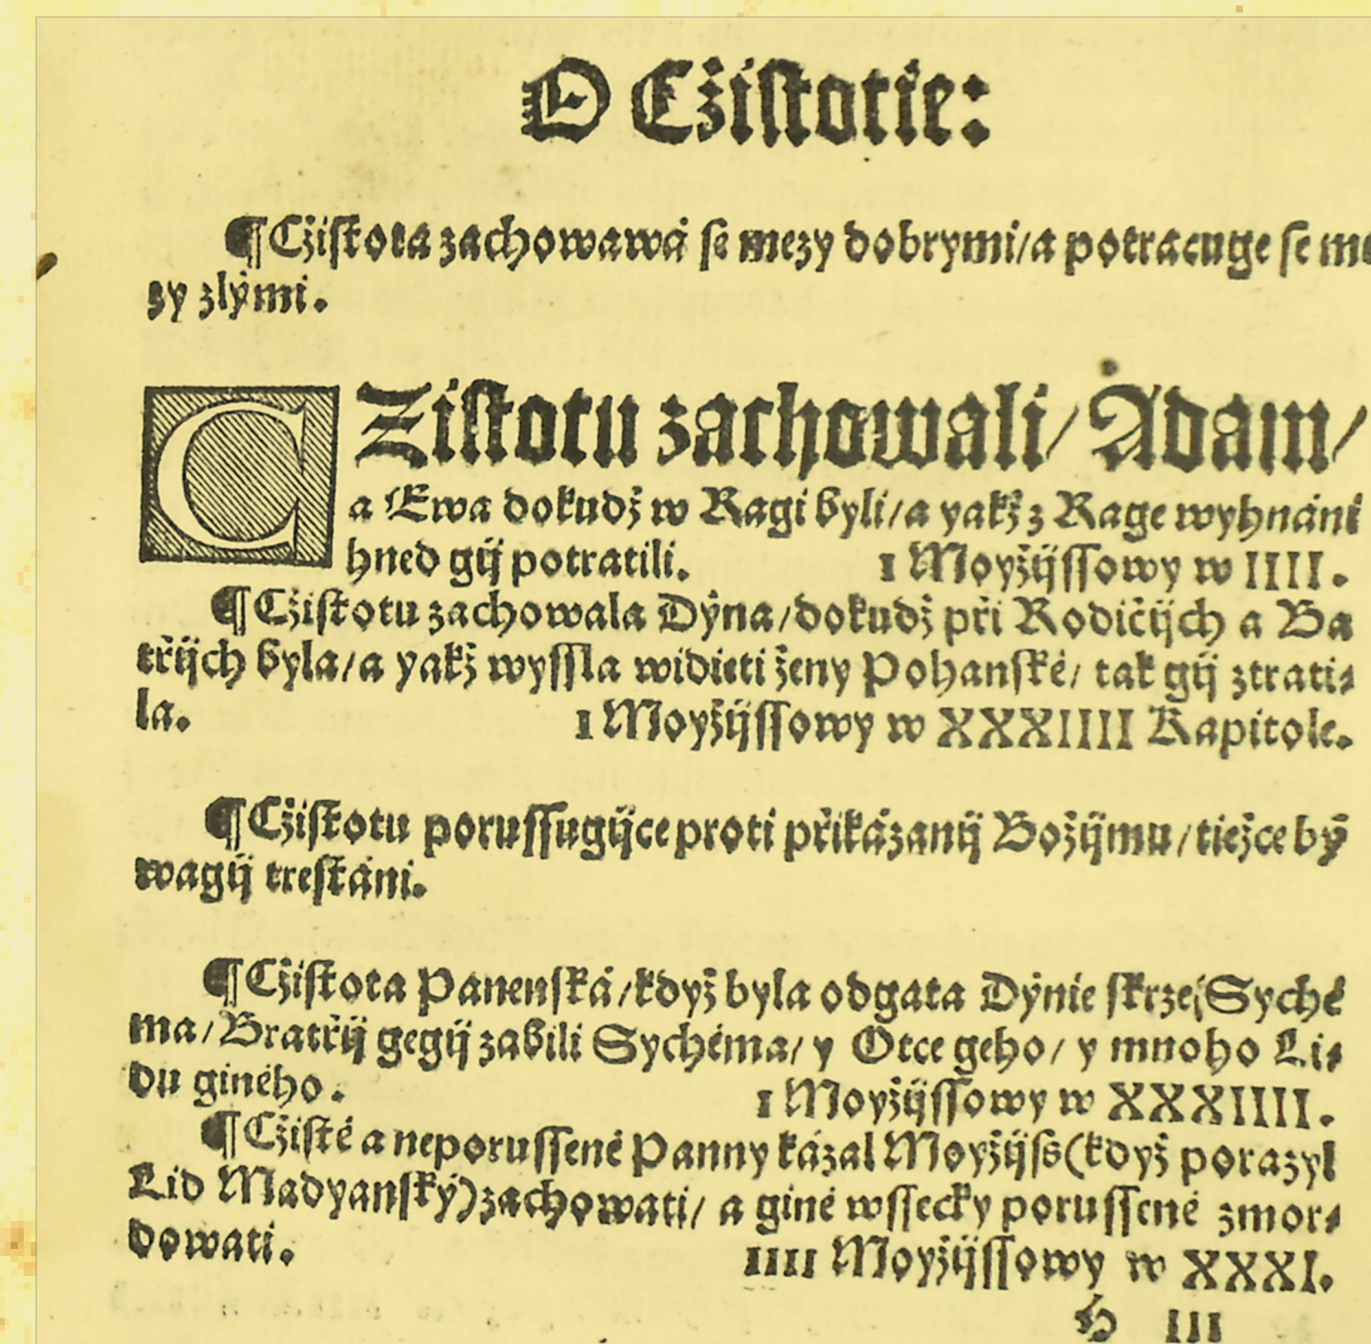 O Cžistotie:
¶Cžistota zachowawá se mezy dobrymi/a potracuge se me
zy zlými.
CZistotu zachowali/ Adam/
a Ewa dokudž w Ragi byli/a yakž z Rage wyhnáni
hned gij potratili. I Moyžijssowy w IIII.
¶Cžistotu zachowala Dýna/dokudž při Rodičijch a Ba
třijch byla/a yakž wyssla widieti ženy Pohanské/ tak gij ztrati⸗
la. I Moyžijssowy w XXXIIII Kapitole.
¶Cžistotu porussugijce proti přikázanij Božijmu/tiežce bý
wagij trestáni.
¶Cžistota Panenská/když byla odgata Dýnie skrze Syché
ma/Bratřij gegij zabili Sychéma/ y Otce geho/ y mnoho Li⸗
du giného. I Moyžijssowy w XXXIIII.
¶Cžisté a neporussené Panny kázal Moyžijss(když porazyl
Lid Madyanský)zachowati/ a giné wssecky porussené zmor⸗
dowati. IIII Moyžijssowy w XXXI.
H III